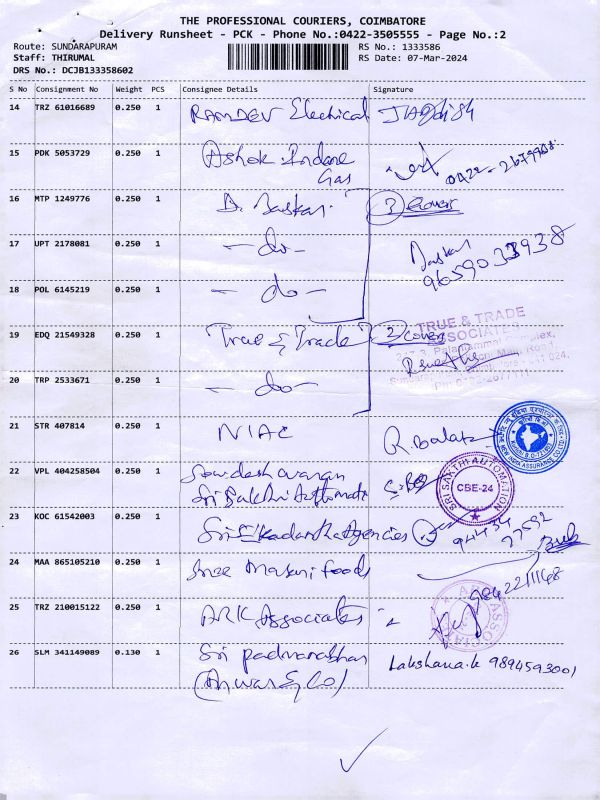 THE PROFESSIONAL COURIERS, COIMBATORE
Delivery Runsheet - PCK - Phone No.:0422-3505555 - Page No.:2
Route: SUNDARAPURAM
RS No.: 1333586
Staff: THIRUMAL
RS Date: 07-Mar-2024
DRS No.: DCJB133358602
S No Consignment No Weight PCS Consignee Details Signature
14 TRZ 61016689 0.250 1 RAMDEV Electrical
15 PDK 5053729 0.250 1 Ashok Indane
Gas
16 MTP 1249776 0.250 1 D. Baskar 3 Covers
17 UPT 2178081 0.250 1 - do - Baskar
9659033938
18 POL 6145219 0.250 1 - do -
19 EDQ 21549328 0.250 1 True & Trade 2 covers
TRUE & TRADE
ASSOCIATES
20 TRP 2533671 0.250 1 - do -
21 STR 407814 0.250 1 NIAC R Balak
22 VPL 404258504 0.250 1
Sri Sakthi Automati
SRI SAKTHI AUTOMATION
CBE-24
23 KOC 61542003 0.250 1 Agencies
94434
77592
24 MAA 865105210 0.250 1 Sree Masani Foods
9842211168
25 TRZ 210015122 0.250 1 ARK Associates
26 SLM 341149089 0.130 1 Sri padmanabhan Lakshana.k 9894593001
(Anwar & Co)